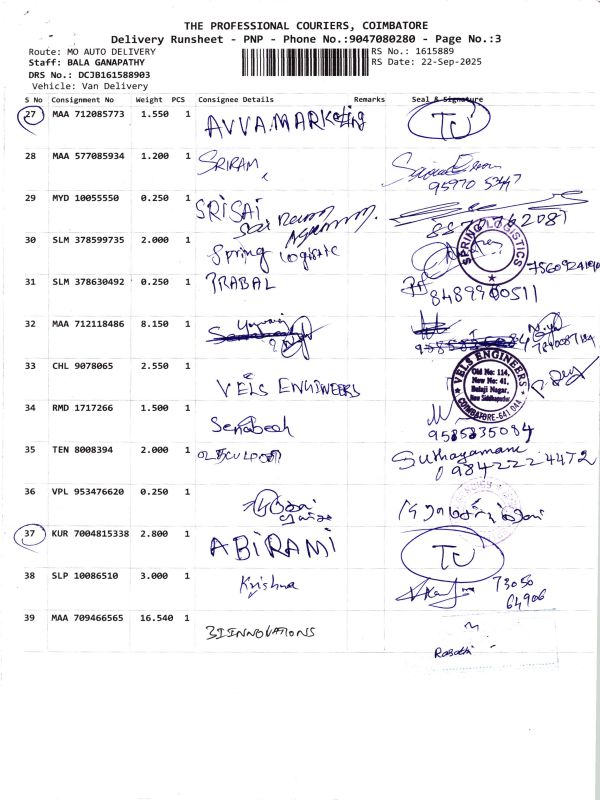 THE PROFESSIONAL COURIERS, COIMBATORE
Delivery Runsheet - PNP - Phone No.:9047080280 - Page No.:3
Route: MO AUTO DELIVERY
RS No.: 1615889
Staff: BALA GANAPATHY
RS Date: 22-Sep-2025
DRS No.: DCJB161588903
Vehicle: Van Delivery
S No Consignment No Weight PCS Consignee Details Remarks Seal & Signature
27 MAA 712085773 1.550 1 AVVA.MARKETING TU
28 MAA 577085934 1.200 1 SRIRAM
29 MYD 10055550 0.250 1 SRISAI
30 SLM 378599735 2.000 1 Spring Logistic SPRING LOGISTICS
31 SLM 378630492 0.250 1 PRABAL 8489900511
32 MAA 712118486 8.150 1
33 CHL 9078065 2.550 1 VELS ENGINEERS VELS ENGINEERS
Old No: 114,
New No: 41,
Balaji Nagar,
New Siddhapudur
COIMBATORE-641 044
34 RMD 1717266 1.500 1 9585835084
35 TEN 8008394 2.000 1 Suthayamani
09842224472
36 VPL 953476620 0.250 1
37 KUR 7004815338 2.800 1 ABIRAMI TU
38 SLP 10086510 3.000 1 Krishna 73050
64906
39 MAA 709466565 16.540 1 3I INNOVATIONS